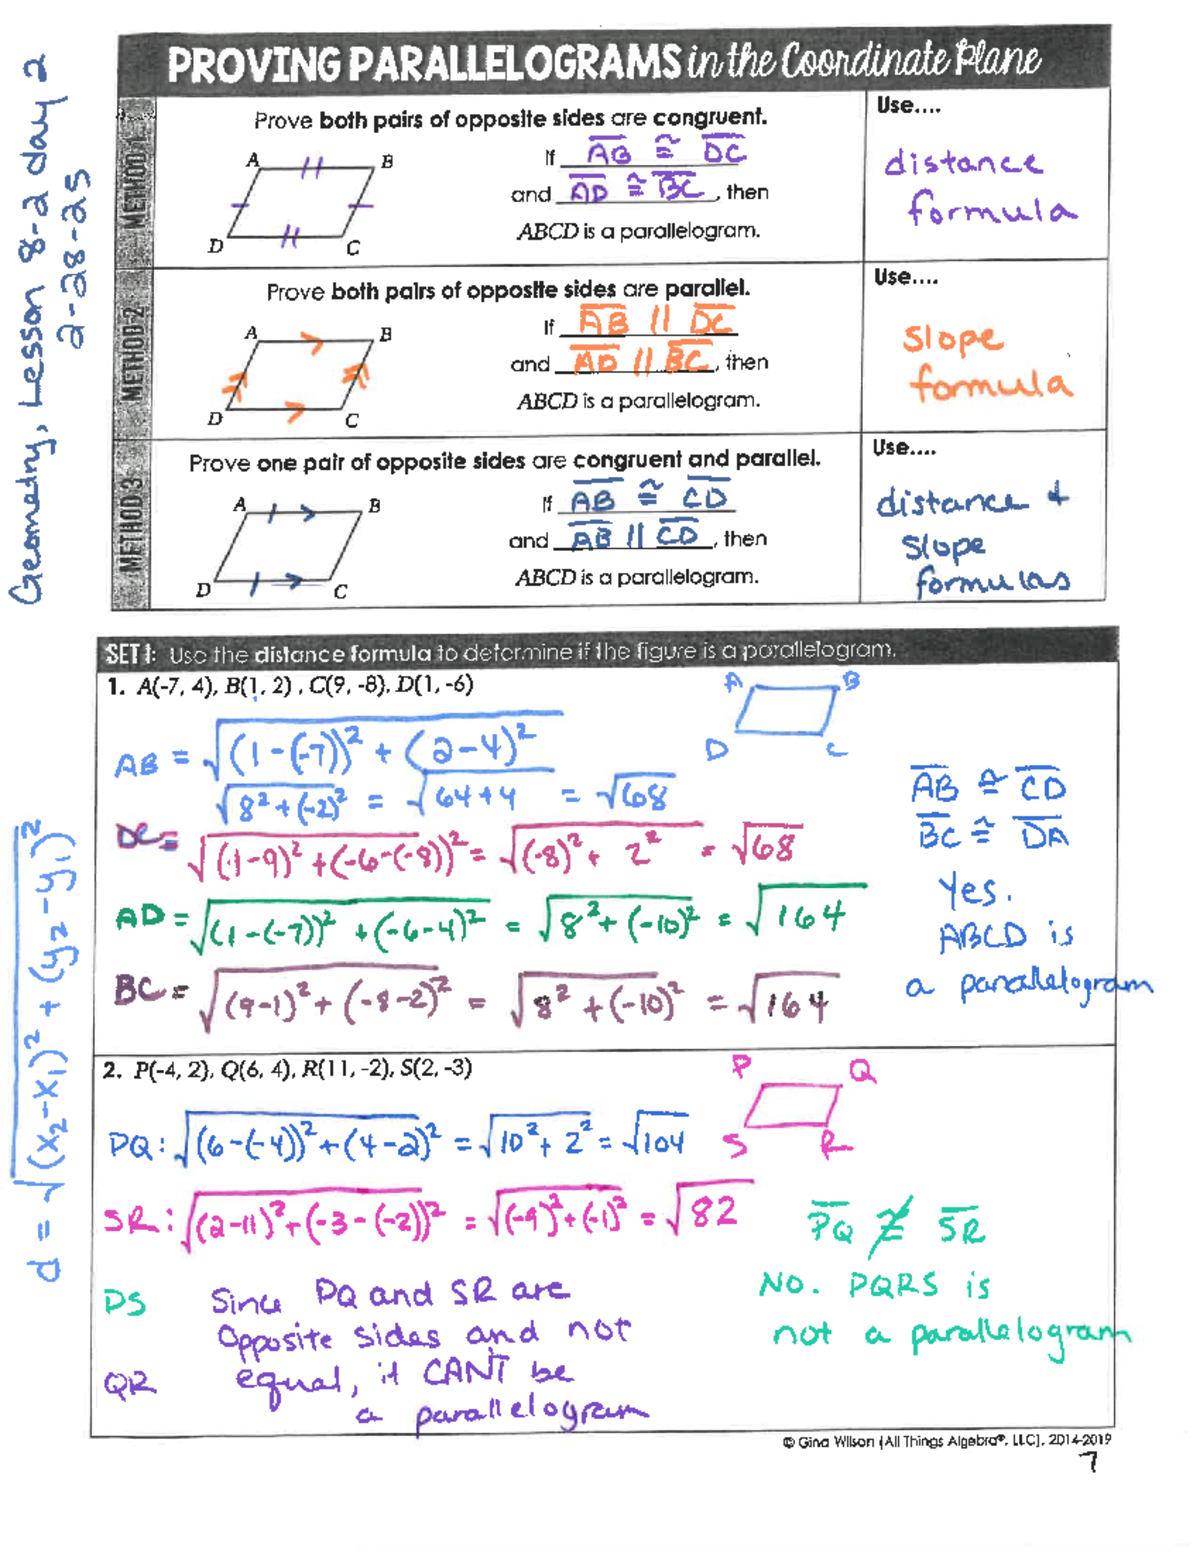 Geometry, Lesson 8-2 day 2
2-28-25
PROVING PARALLELOGRAMS in the Coordinate Plane
METHOD 1:
Prove both pairs of opposite sides are congruent.
A B D C
If AB ≅ DC
and AD ≅ BC, then
ABCD is a parallelogram.
Use....
distance
formula
METHOD 2:
Prove both pairs of opposite sides are parallel.
A B D C
If AB || DC
and AD || BC, then
ABCD is a parallelogram.
Use....
slope
formula
METHOD 3:
Prove one pair of opposite sides are congruent and parallel.
A B D C
If AB ≅ CD
and AB || CD, then
ABCD is a parallelogram.
Use....
distance +
slope
formulas
SET 1: Use the distance formula to determine if the figure is a parallelogram.
d = √(x₂-x₁)² + (y₂-y₁)²
1. A(-7, 4), B(1, 2), C(9, -8), D(1, -6)
A B D C
AB = √(1-(-7))² + (2-4)²
√8²+(-2)² = √64+4 = √68
DC = √(1-9)² + (-6-(-8))² = √(-8)² + 2² = √68
AD = √(1-(-7))² + (-6-4)² = √8² + (-10)² = √164
BC = √(9-1)² + (-8-2)² = √8² + (-10)² = √164
AB ≅ CD
BC ≅ DA
Yes.
ABCD is
a parallelogram
2. P(-4, 2), Q(6, 4), R(11, -2), S(2, -3)
P Q S R
PQ: √(6-(-4))² + (4-2)² = √10² + 2² = √104
SR: √(2-11)² + (-3-(-2))² = √(-9)² + (-1)² = √82
PQ ≇ SR
NO. PQRS is
not a parallelogram
PS
QR
Since PQ and SR are
opposite sides and not
equal, it CANT be
a parallelogram
© Gina Wilson (All Things Algebra®, LLC), 2014-2019
7